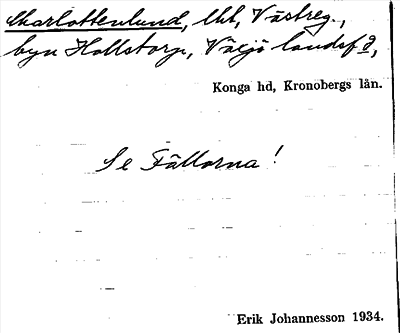 Charlottenlund, lht, Västreg.,
byn Hallstorp, Växjö landsf d,
Konga hd, Kronobergs län.
Se Fällorna!
Erik Johannesson 1934.